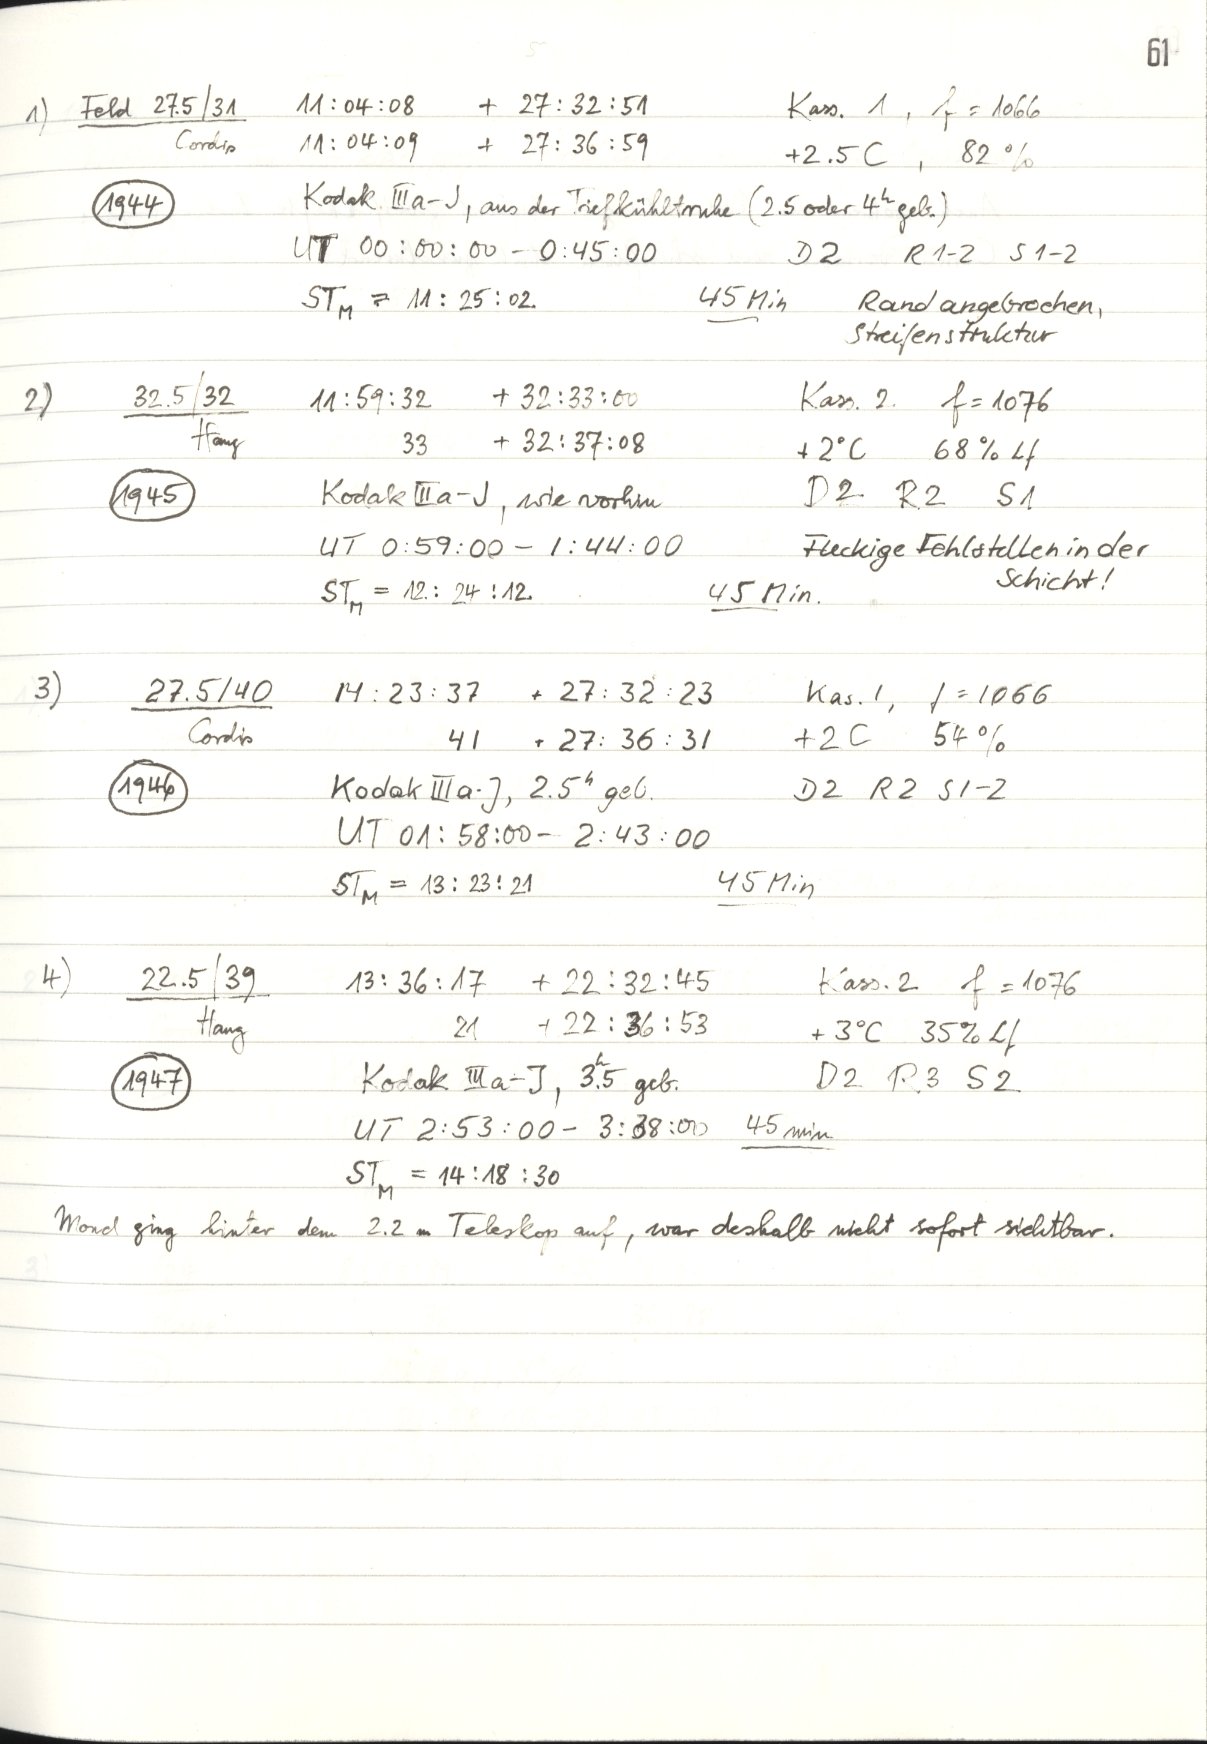 61
1) Feld 27.5/31 11:04:08 + 27:32:51 Kass. 1, f = 1066
Cordis 11:04:09 + 27:36:59 +2.5 C, 82 %
1944 Kodak IIIa-J, aus der Tiefkühltruhe (2.5 oder 4h geb.)
UT 00:00:00 - 0:45:00 D2 R1-2 S1-2
STM = 11:25:02. 45 Min Rand angebrochen,
Streifenstruktur
2) 32.5/32 11:59:32 + 32:33:00 Kass. 2. f = 1076
Haug 33 + 32:37:08 +2°C 68% Lf
1945 Kodak IIIa-J, wie vorhin D2 R2 S1
UT 0:59:00 - 1:44:00 Fleckige Fehlstellen in der
STM = 12:24:12. 45 Min. Schicht!
3) 27.5/40 14:23:37 + 27:32:23 Kas. 1, f = 1066
Cordis 41 + 27:36:31 +2 C 54%
1946 Kodak IIIa-J, 2.5h geb. D2 R2 S1-2
UT 01:58:00 - 2:43:00
STM = 13:23:21 45 Min
4) 22.5/39 13:36:17 + 22:32:45 Kass. 2 f = 1076
Haug 21 + 22:36:53 + 3°C 35% Lf
1947 Kodak IIIa-J, 3h.5 geb. D2 R3 S2
UT 2:53:00 - 3:38:00 45 min
STM = 14:18:30
Mond ging hinter dem 2.2 m Teleskop auf, war deshalb nicht sofort sichtbar.